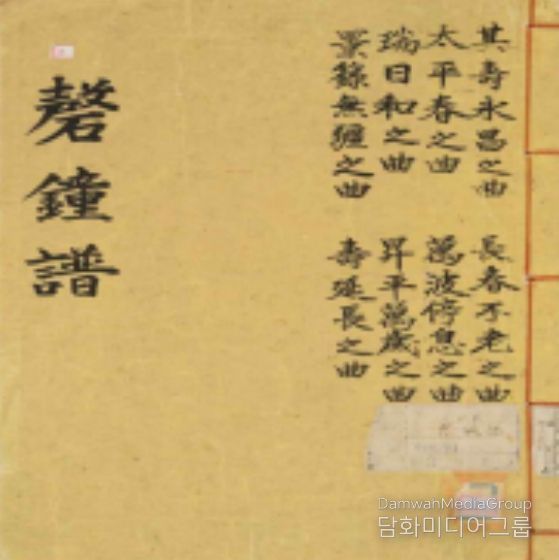 其壽永昌之曲
太平春之曲
瑞日和之曲
景籙無疆之曲
長春不老之曲
萬波停息之曲
昇平萬歲之曲
壽延長之曲
磬鐘譜
DamwhaMediaGroup
담화미디어그룹